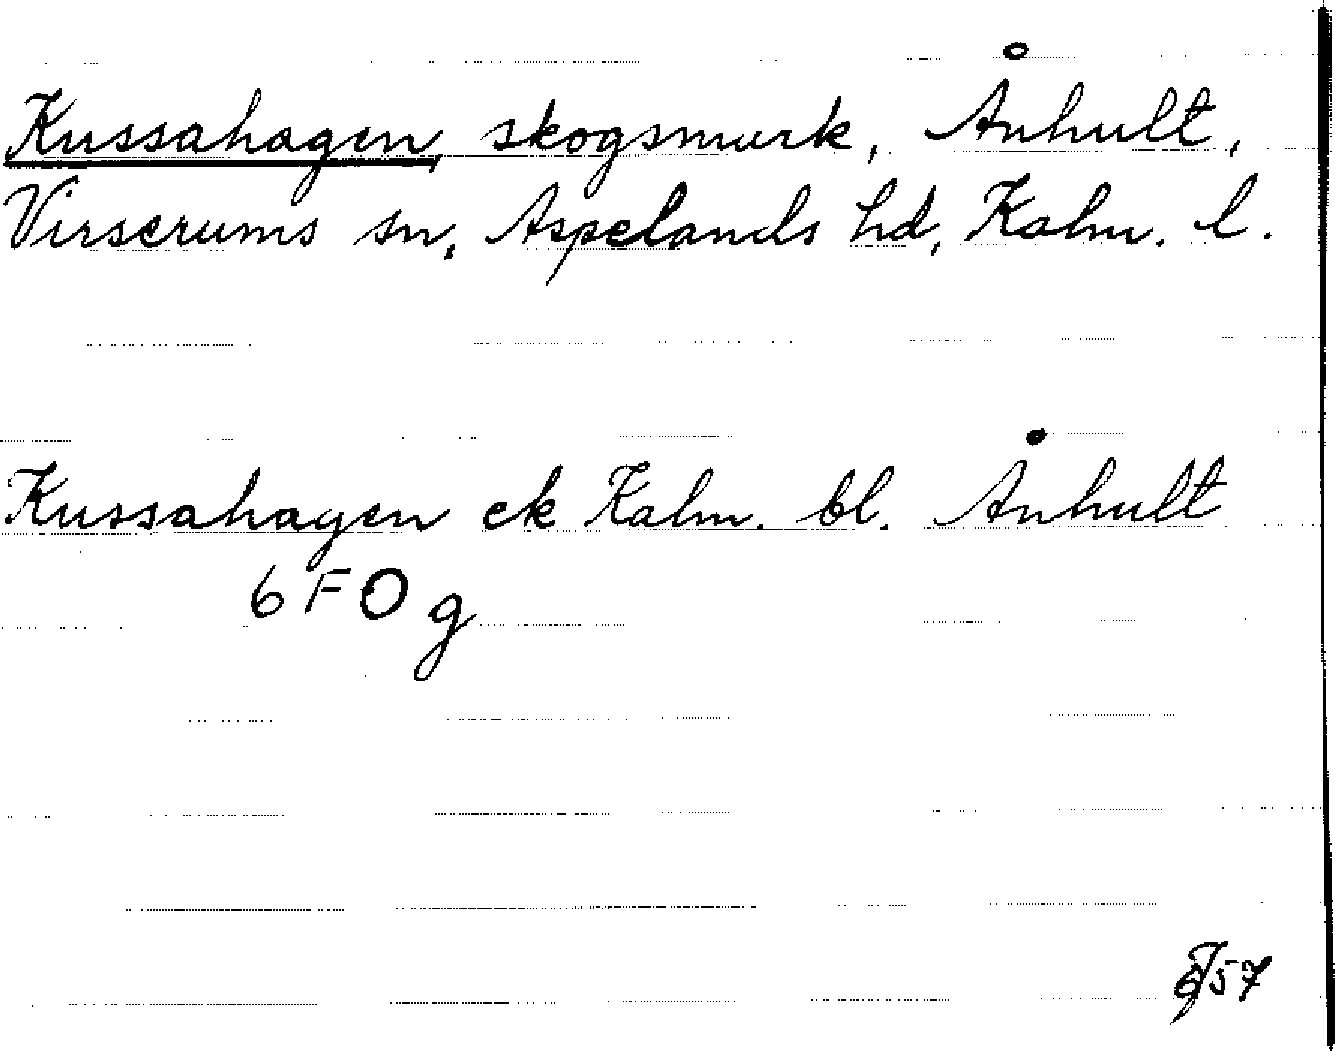 Kussahagen, skogsmark, Ånhult,
Virserums sn, Aspelands hd, Kalm. l.
Kussahagen ek Kalm. bl. Ånhult
6 F O g
57